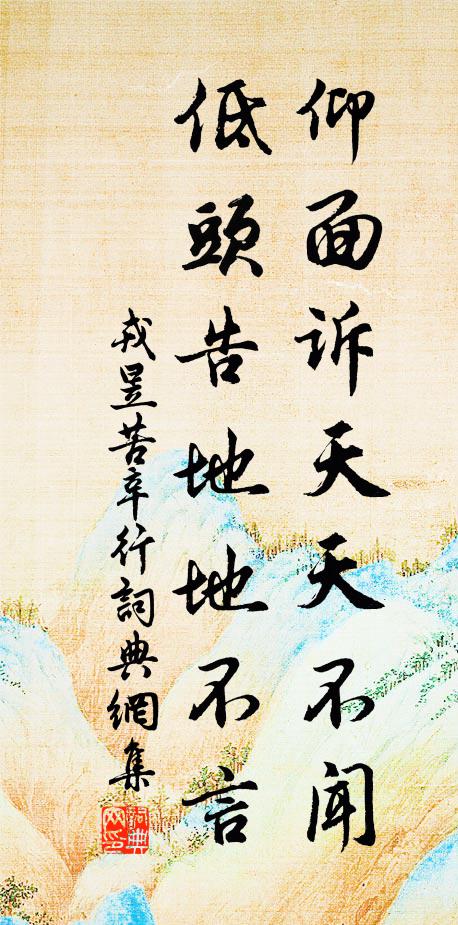 仰面诉天天不闻
低頭告地地不言
戎昱苦辛行詞典網集
詞典網印